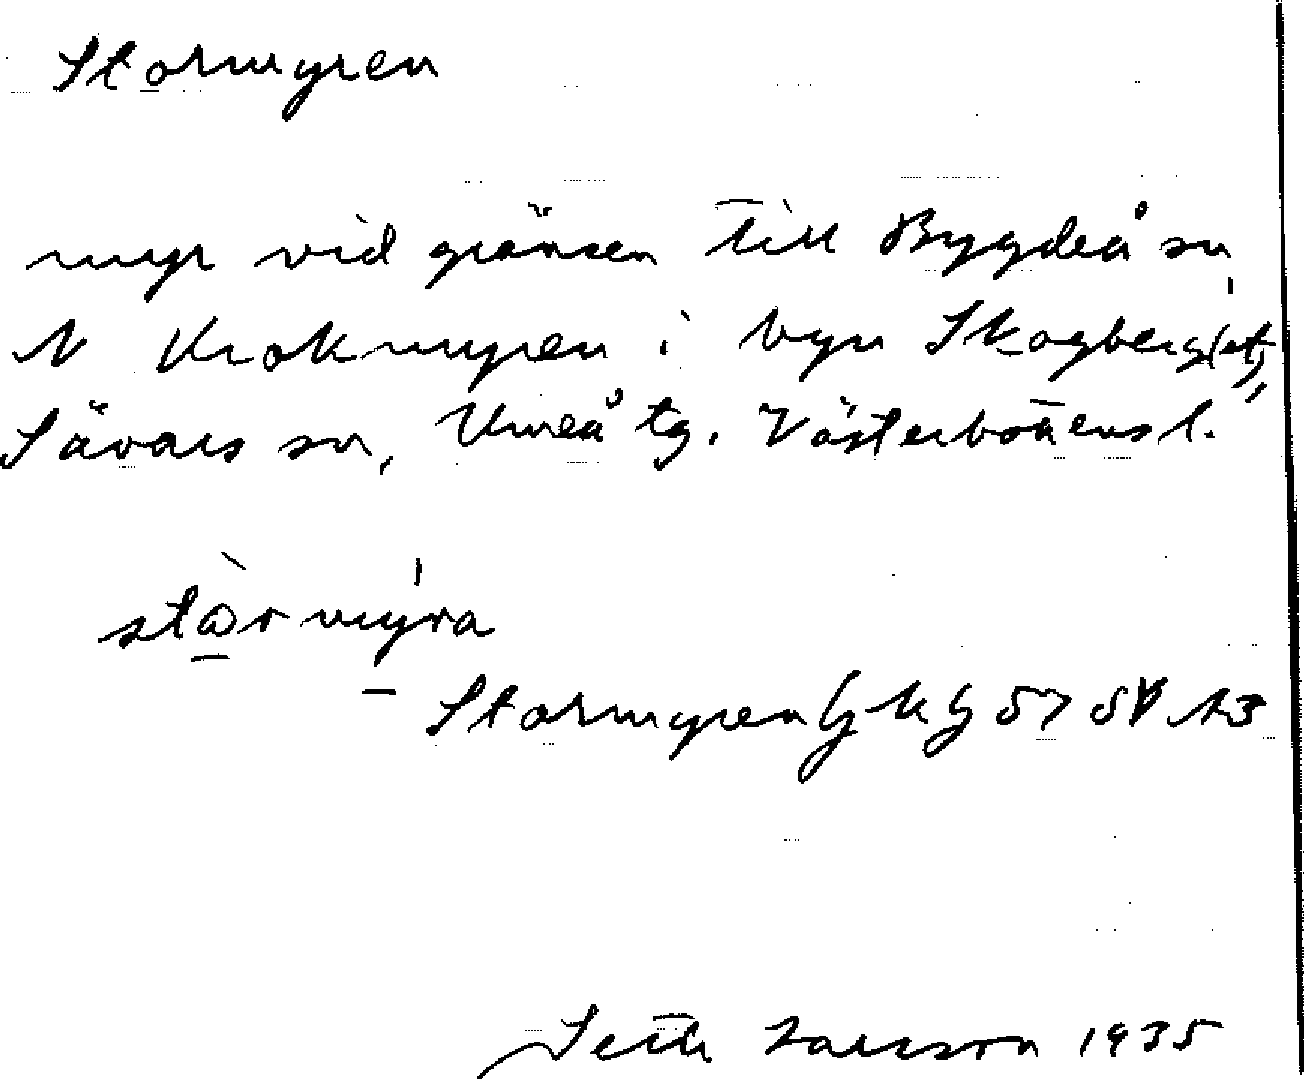 Stormyren
myr vid gränsen till Bygdeå sn,
N Krokmyren i byn Skogberg(et),
Sävars sn, Umeå tg. Västerbottens l.
stormyra
Stormyren GKG 57 SV
Seth Larsson 1935